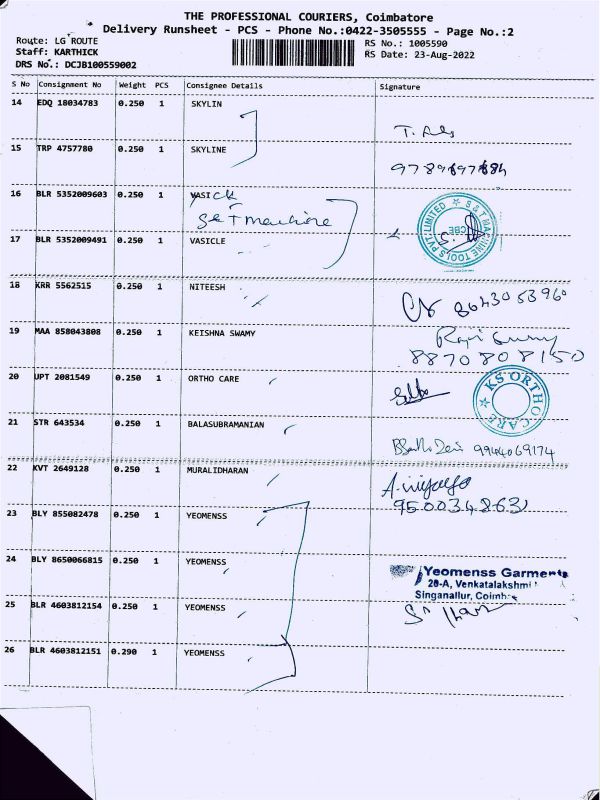 THE PROFESSIONAL COURIERS, Coimbatore
Delivery Runsheet - PCS - Phone No.:0422-3505555 - Page No.:2
Route: LG ROUTE
RS No.: 1005590
Staff: KARTHICK
RS Date: 23-Aug-2022
DRS No.: DCJB100559002
S No Consignment No Weight PCS Consignee Details Signature
14 EDQ 18034783 0.250 1 SKYLIN
15 TRP 4757780 0.250 1 SKYLINE
16 BLR 5352009603 0.250 1 VASICK
S&T machine
S & T MACHINE TOOLS PVT. LIMITED
CBE
17 BLR 5352009491 0.250 1 VASICLE
18 KRR 5562515 0.250 1 NITEESH
8043053960
19 MAA 858043808 0.250 1 KEISHNA SWAMY
8870808150
20 UPT 2081549 0.250 1 ORTHO CARE
KS ORTHO CARE
21 STR 643534 0.250 1 BALASUBRAMANIAN
9944069174
22 KVT 2649128 0.250 1 MURALIDHARAN
23 BLY 855082478 0.250 1 YEOMENSS
24 BLY 8650066815 0.250 1 YEOMENSS
Yeomenss Garments
28-A, Venkatalakshmi
Singanallur,
25 BLR 4603812154 0.250 1 YEOMENSS
26 BLR 4603812151 0.290 1 YEOMENSS